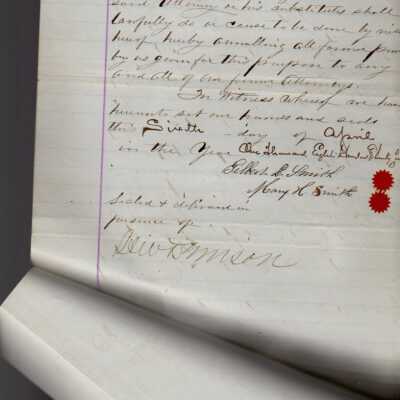 said Attorney or his substitutes shall
lawfully do or cause to be done by
hereof hereby annulling all former
by us given for this purpose to any
and all of our former Attorneys.
In Witness whereof we have
hereunto set our hands and seals
this Sixth day of April
in the Year One Thousand Eight Hundred
Smith
Mary H Smith
Sealed & delivered in
presence of